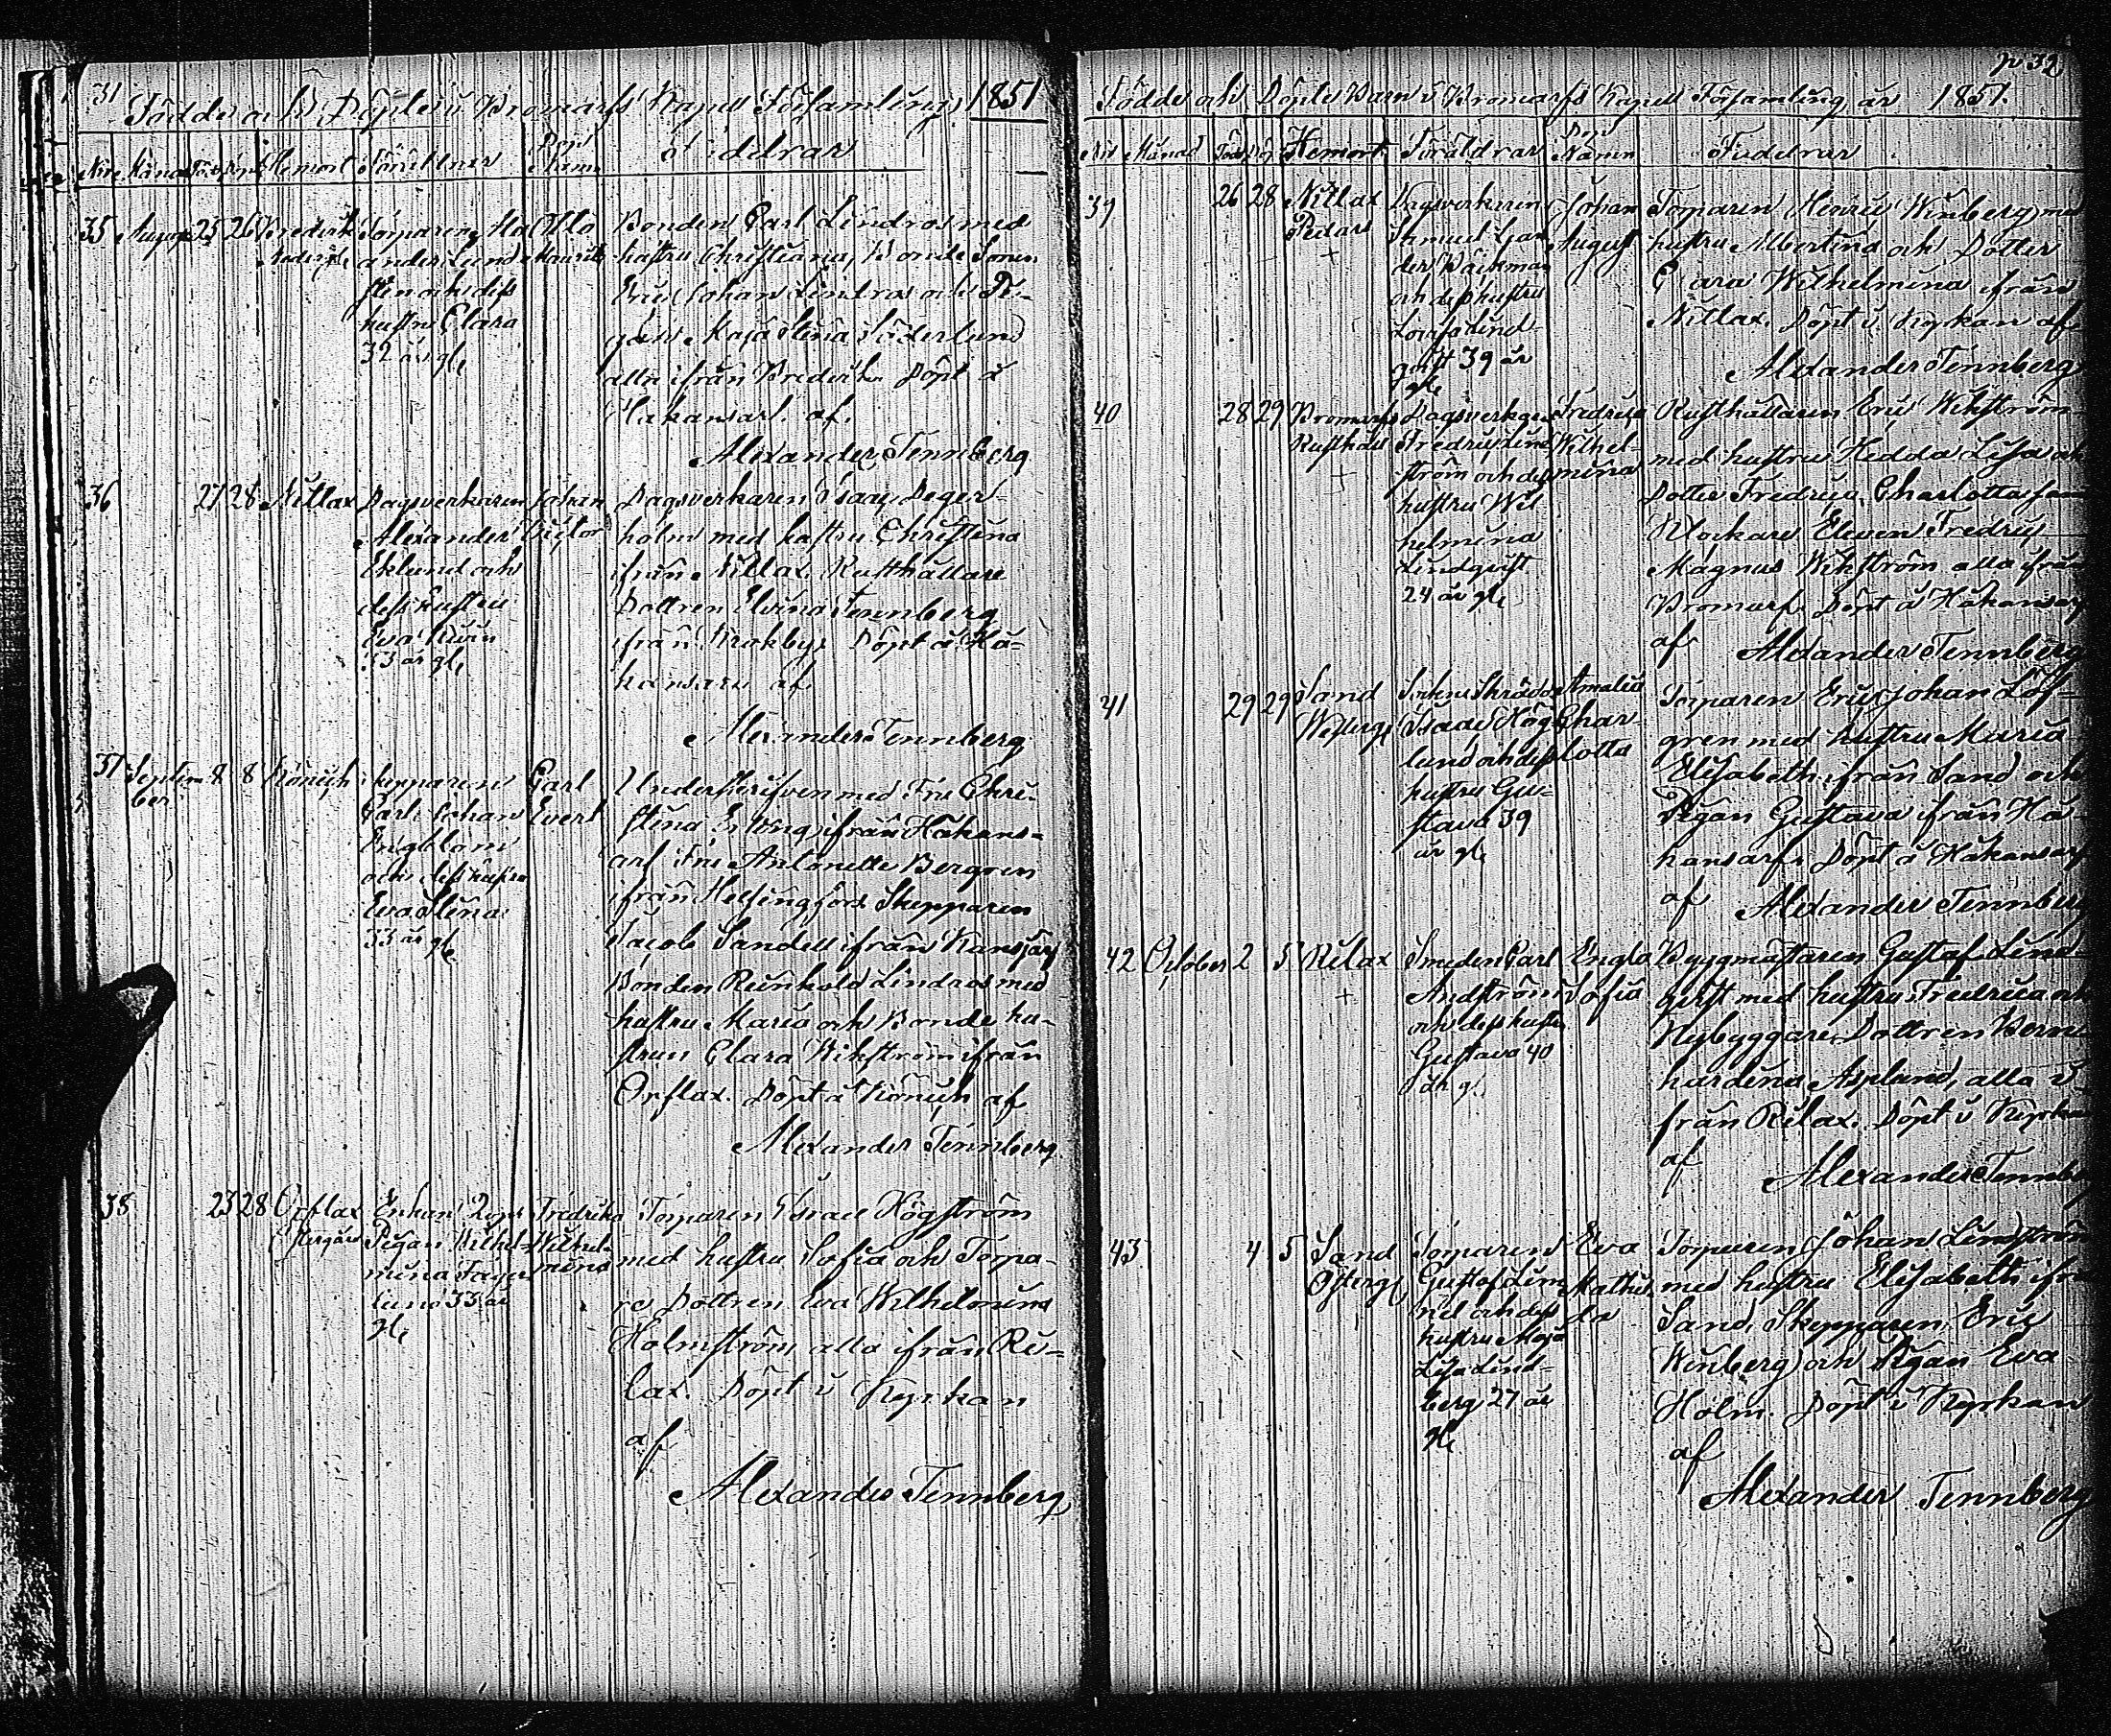 31
Födde och Döpte i Bromarfs Kapell Församling 1851
N:ro Månad Född Döpt Hemort Föräldrar Dop Namn Faddrar
35 Augusti 25 26 Bredvik
Torparen
ander Lund
sten och dess
hustru Clara
32 år gl.
Otto
Mauritz
Bonden Carl Lindros med
hustru Christiana, Bonde Sonen
Eric Johan Lindros och Pi-
gan Maja Stina Söderlund
alla ifrån Bredvik. Döpt å
Håkansarf af.
Alexander Tennberg
36 27 28 Nitlax
Dagsverkaren
Alexander
Eklund och
dess hustru
Eva
33 år gl.
Johan
Victor
Dagsverkaren Isaac Deger-
holm med hustru Christina
ifrån Nitlax. Rusthållare
Dottren Elvina Tennberg
ifrån Krokby. Döpt å Hå-
kansarf af
Alexander Tennberg
37 Septem-
ber 8 8 Könick
Skepparen
Carl Johan
Engblom
och dess hustru
Eva Stina
33 år gl.
Carl
Evert
Underskrifven med Fru Chri-
stina ifrån Håkans-
arf Fru Antonette Bergren
ifrån Helsingfors Skepparen
Jacob Sandell ifrån Kansjärf
Bonden Reinhold Lindros med
hustru Maria och Bonde hu-
strun Clara Wikström ifrån
Orslax. Döpt å Könick af
Alexander Tennberg
38 23 28 Orslax
Östergård
Enkan
Pigan Wilhel-
mina Fager-
lund 33 år
gl.
Fredrika
Wilhel-
mina
Torparen Isaac Högström
med hustru Sofia och Torpa-
re Dottren Eva Wilhelmina
Holmström, alla ifrån Ri-
lax. Döpt i Kyrkan
af
Alexander Tennberg
p 32
Födde och Döpte Barn i Bromarfs Kapell Församling år 1851.
N:ro Månad Född Döpt Hemort Föräldrar Dop Namn Faddrar
39 26 28 Nitlax
Pedars
Dagsverkaren
Samuel
der Bäckman
och dess hustru
Lovisa Lind-
qvist 39 år
gl.
Johan
August
Torparen Henric Winberg med
hustru Albertina och Dotter
Clara Wilhelmina ifrån
Nitlax. Döpt i Kyrkan af
Alexander Tennberg
40 28 29 Bromarfs
Rusthåll
Dagsverkaren
Fredric Lind-
ström och dess
hustru Wil-
helmina
Lindqvist
24 år gl.
Fredrica
Wilhel-
mina
Rusthållaren Eric Wikström
med hustru Hedda Lisa och
Dotter Fredrica Charlotta samt
Klockare Eleven Fredric
Magnus Wikström alla ifrån
Bromarf. Döpt å Håkansarf
af Alexander Tennberg
41 29 29 Sand
Westerg.
Sockne Skräddaren
Isaac Hög-
lund och dess
hustru Gu-
stava 39
år gl.
Amalia
Char-
lotta
Torparen Eric Johan Löf-
gren med hustru Maria
Elisabeth ifrån Sand och
Pigan Gustava ifrån Hå-
kansarf. Döpt å Håkansarf
af Alexander Tennberg
42 October 2 5 Rilax
Smeden Carl
Andström
och dess hustru
Gustava 40
år gl.
Engla
Sofia
Byggmästaren Gustaf Lind-
qvist med hustru Fredrica och
Nybyggare Dottren Bern-
hardina Asplund, alla i-
från Rilax. Döpt i Kyrkan
af
Alexander Tennberg
43 4 5 Sand
Österg.
Torparen
Gustaf Lin-
och dess
hustru Maja
Lisa Lind-
berg 27 år
gl.
Eva
Mathil-
da
Torparen Johan Lindström
med hustru Elisabeth ifrån
Sand, Skepparen Eric
Winberg och Pigan Eva
Holm. Döpt i Kyrkan
af
Alexander Tennberg